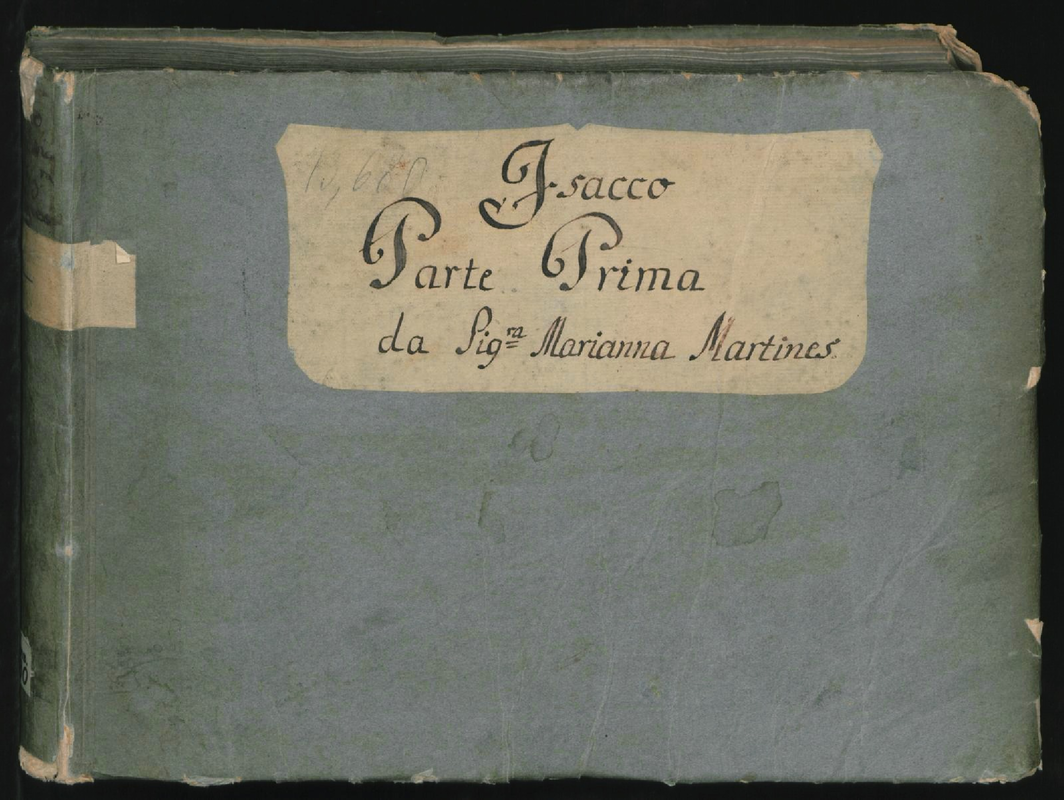 Isacco
Parte Prima
da Sig.ra Marianna Martines